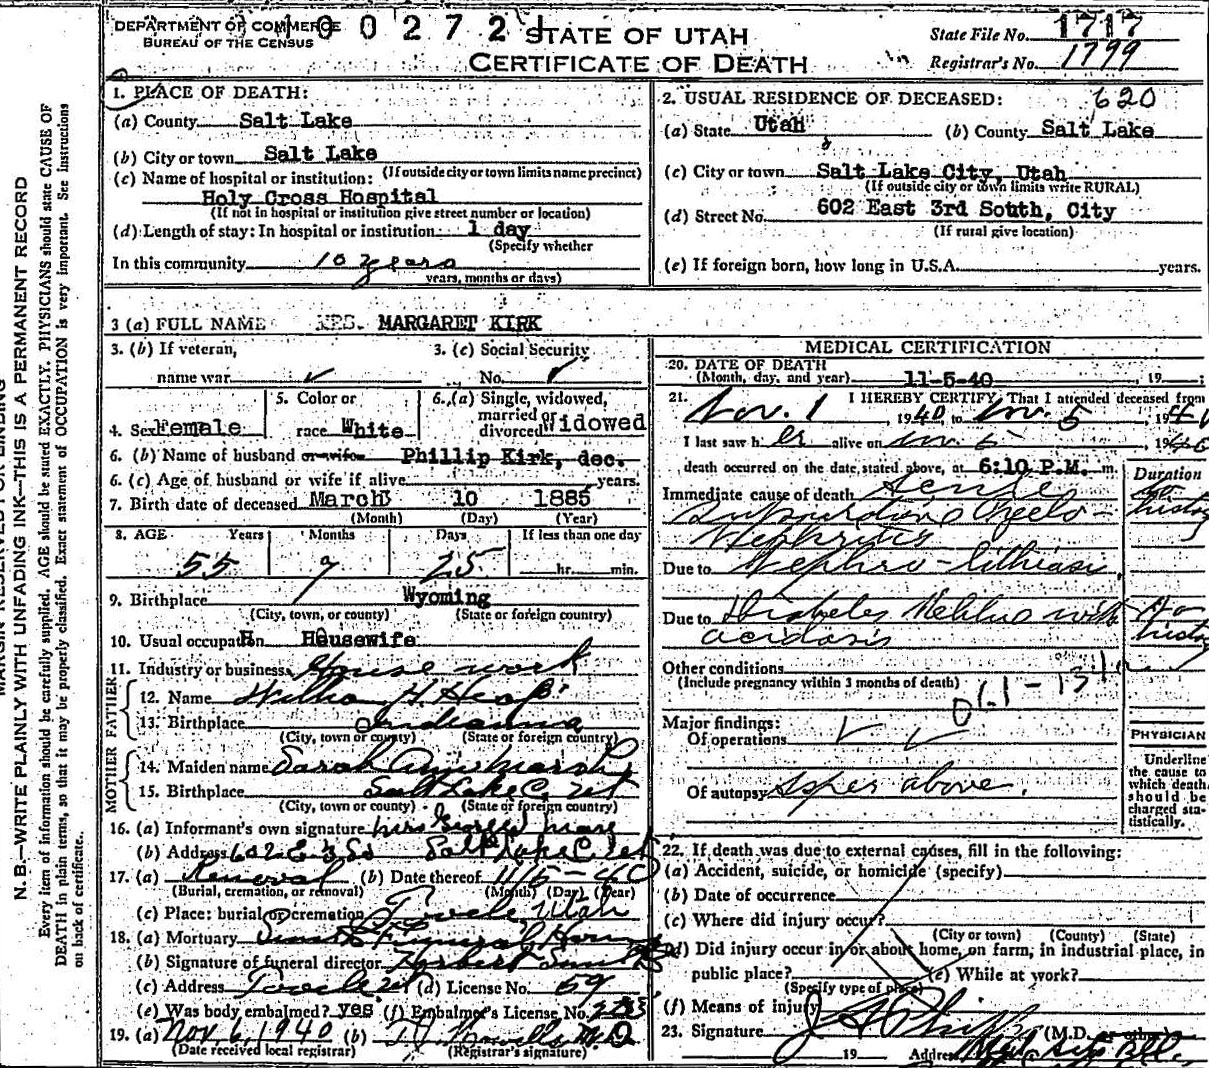 DEPARTMENT OF COMMERCE
BUREAU OF THE CENSUS
100272
STATE OF UTAH
CERTIFICATE OF DEATH
State File No. 1717
Registrar's No. 1799
1. PLACE OF DEATH:
(a) County Salt Lake
(b) City or town Salt Lake
(If outside city or town limits name precinct)
(c) Name of hospital or institution:
Holy Cross Hospital
(If not in hospital or institution give street number or location)
(d) Length of stay: In hospital or institution 1 day
(Specify whether
In this community 10 years
years, months or days)
2. USUAL RESIDENCE OF DECEASED: 620
(a) State Utah (b) County Salt Lake
(c) City or town Salt Lake City, Utah
(If outside city or town limits write RURAL)
(d) Street No. 602 East 3rd South, City
(If rural give location)
(e) If foreign born, how long in U.S.A. years.
3 (a) FULL NAME MRS. MARGARET KIRK
3. (b) If veteran,
name war
3. (c) Social Security
No.
4. Sex Female
5. Color or
race White
6. (a) Single, widowed,
married or
divorced Widowed
6. (b) Name of husband or wife Phillip Kirk, dec.
6. (c) Age of husband or wife if alive years.
7. Birth date of deceased March 10 1885
(Month) (Day) (Year)
8. AGE Years Months Days If less than one day
55 7 25 hr. min.
9. Birthplace Wyoming
(City, town, or county) (State or foreign country)
10. Usual occupation Housewife
11. Industry or business House work
FATHER
12. Name H.
13. Birthplace Indianna
(City, town or county) (State or foreign country)
MOTHER
14. Maiden name Sarah Ann
15. Birthplace Salt Lake C. Ut
(City, town or county) (State or foreign country)
16. (a) Informant's own signature Mrs
(b) Address 602 E 3 So Salt Lake C. Ut
17. (a) Removal (b) Date thereof 11/5-40
(Burial, cremation, or removal) (Month) (Day) (Year)
(c) Place: burial or cremation Tooele, Utah
18. (a) Mortuary Funeral Home
(b) Signature of funeral director Herbert
(c) Address Tooele Ut (d) License No. 59
(e) Was body embalmed? yes (f) Embalmer's License No.
19. (a) Nov. 6, 1940 (b) M.D.
(Date received local registrar) (Registrar's signature)
MEDICAL CERTIFICATION
20. DATE OF DEATH
(Month, day, and year) 11-5-40, 19 ;
21. I HEREBY CERTIFY, That I attended deceased from
Nov. 1 1940, to Nov. 5, 1940
I last saw her alive on Nov 5 1940
death occurred on the date stated above, at 6:10 P.M. m.
Duration
Immediate cause of death Acute
Suppurative Pyelo-
Nephritis
no history
Due to Nephro-lithiasis
Due to Diabetes Mellitus with
acidosis
No history
Other conditions
(Include pregnancy within 3 months of death)
Major findings:
Of operations
Of autopsy As per above.
PHYSICIAN
Underline
the cause to
which death
should be
charged sta-
tistically.
22. If death was due to external causes, fill in the following:
(a) Accident, suicide, or homicide (specify)
(b) Date of occurrence
(c) Where did injury occur?
(City or town) (County) (State)
(d) Did injury occur in or about home, on farm, in industrial place, in
public place? (e) While at work?
(Specify type of place)
(f) Means of injury
23. Signature (M.D. or other)
19 Address
MARGIN RESERVED FOR BINDING
N. B.—WRITE PLAINLY WITH UNFADING INK—THIS IS A PERMANENT RECORD
Every item of information should be carefully supplied. AGE should be stated EXACTLY. PHYSICIANS should state CAUSE OF
DEATH in plain terms, so that it may be properly classified. Exact statement of OCCUPATION is very important. See instructions
on back of certificate.